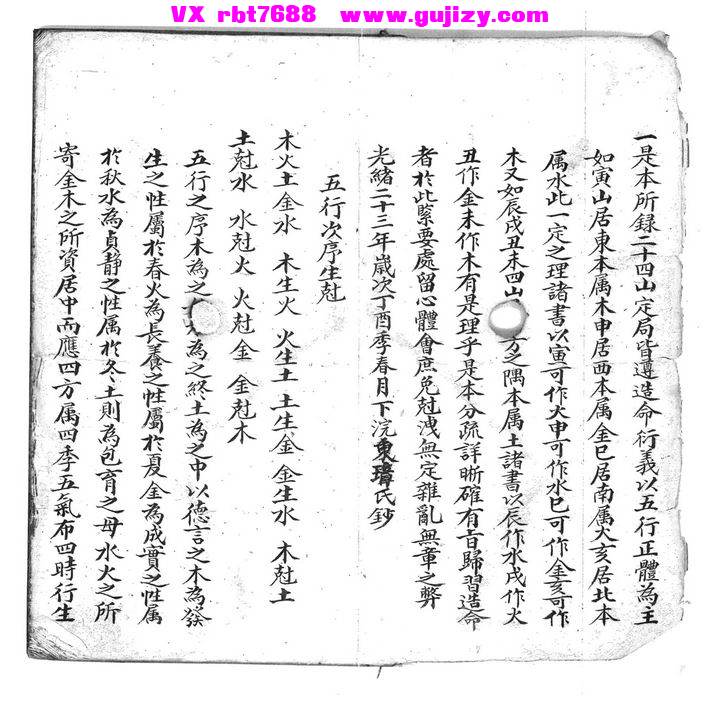 VX rbt7688 www.gujizy.com
一是本所録二十四山定局皆遵造命衍義以五行正體為主
如寅山居東本属木申居西本属金巳居南属火亥居北本
属水此一定之理諸書以寅可作火申可作水巳可作金亥可作
木又如辰戌丑未四山方之隅本属土諸書以辰作水戌作火
丑作金未作木有是理乎是本分疏詳晰確有旨歸習造命
者於此緊要處留心體會庶免尅洩無定雜亂無章之弊
光緒二十三年歲次丁酉季春月下浣東璋氏鈔
五行次序生尅
木火土金水 木生火 火生土 土生金 金生水 木尅土
土尅水 水尅火 火尅金 金尅木
五行之序木為之為之終土為之中以德言之木為發
生之性屬於春火為長養之性屬於夏金為成實之性属
於秋水為貞静之性属於冬土則為包育之母水火之所
寄金木之所資居中而應四方属四季五氣布四時行生